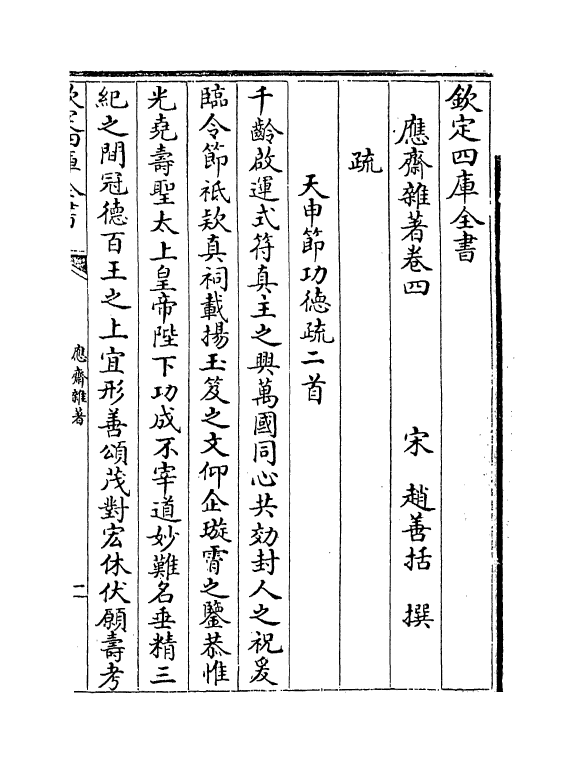 欽定四庫全書
應齋雜著卷四
宋 趙善括 撰
疏
天申節功德疏二首
千齡啟運式符真主之興萬國同心共効封人之祝爰
臨令節祗欵真祠載揚玉笈之文仰企璇霄之鑒恭惟
光堯壽聖太上皇帝陛下功成不宰道妙難名垂精三
紀之間冠德百王之上宜形善頌茂對宏休伏願壽考
欽定四庫全書
應齋雜著
二